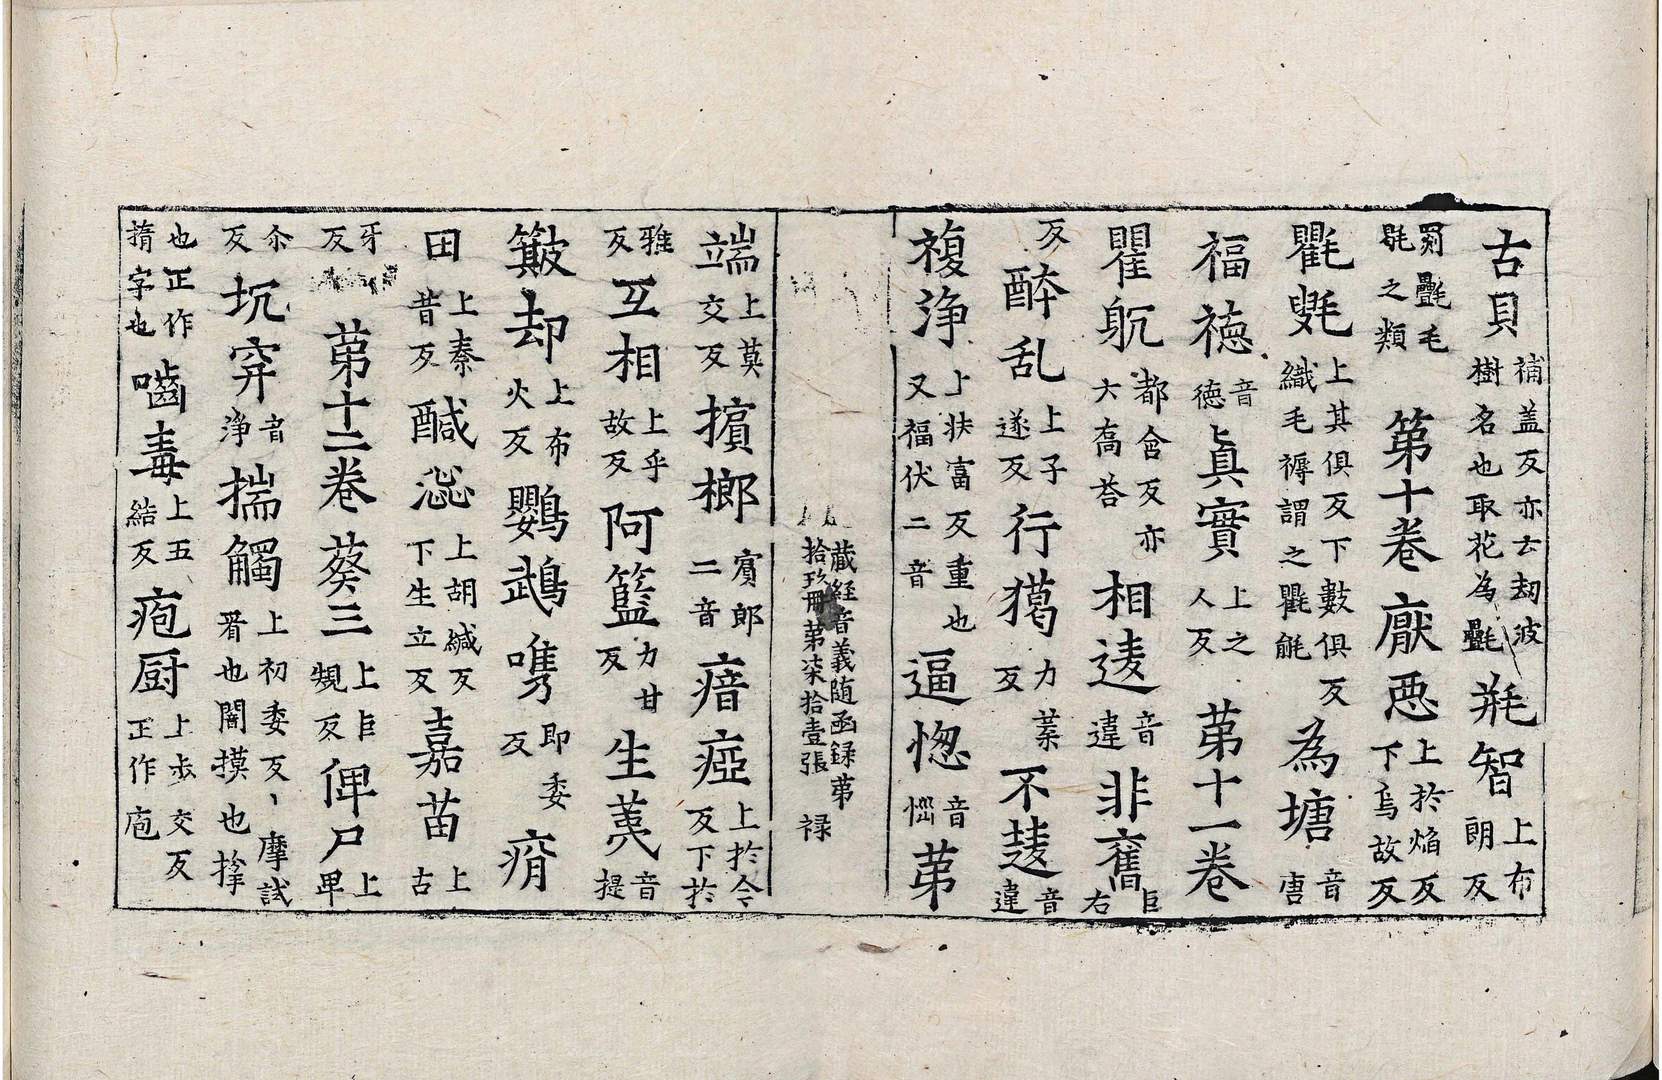 古貝補盖反亦去刼波樹名也取花為㲲毦智上布朗反
罽㲲毛毾之類 第十卷 厭惡上於焰反下烏故反
氍㲣上其俱反下數俱反織毛褥謂之氍毹為塘音唐
福德音德真實上之人反 第十一卷
瞿躭都含反亦大髙荅相逺音違非奮巨右
反酔乱上子遂反行獦力葉反不逺音違
複浄上扶富反重也又福伏二音逼惚音惱第
藏経音義随函録苐拾玖冊苐柒拾壹張 禄
端上莫交反擯榔賔郎二音瘖瘂上扵今反下扵
雅反互相上乎故反阿籃力甘反生荑音提
簸却上布火反鸚鵡㗱即委反𤸪
田上秦昔反醎泌上胡緘反下生立反嘉苗上古
牙反 苐十二卷 葵三上巨䂓反俾尸上𤰞
尒反坑穽音浄揣觸上初委反反丶摩試㝷也闇摸也揣
也正作揹字也嚙毒上五結反疱厨上步交反正作庖